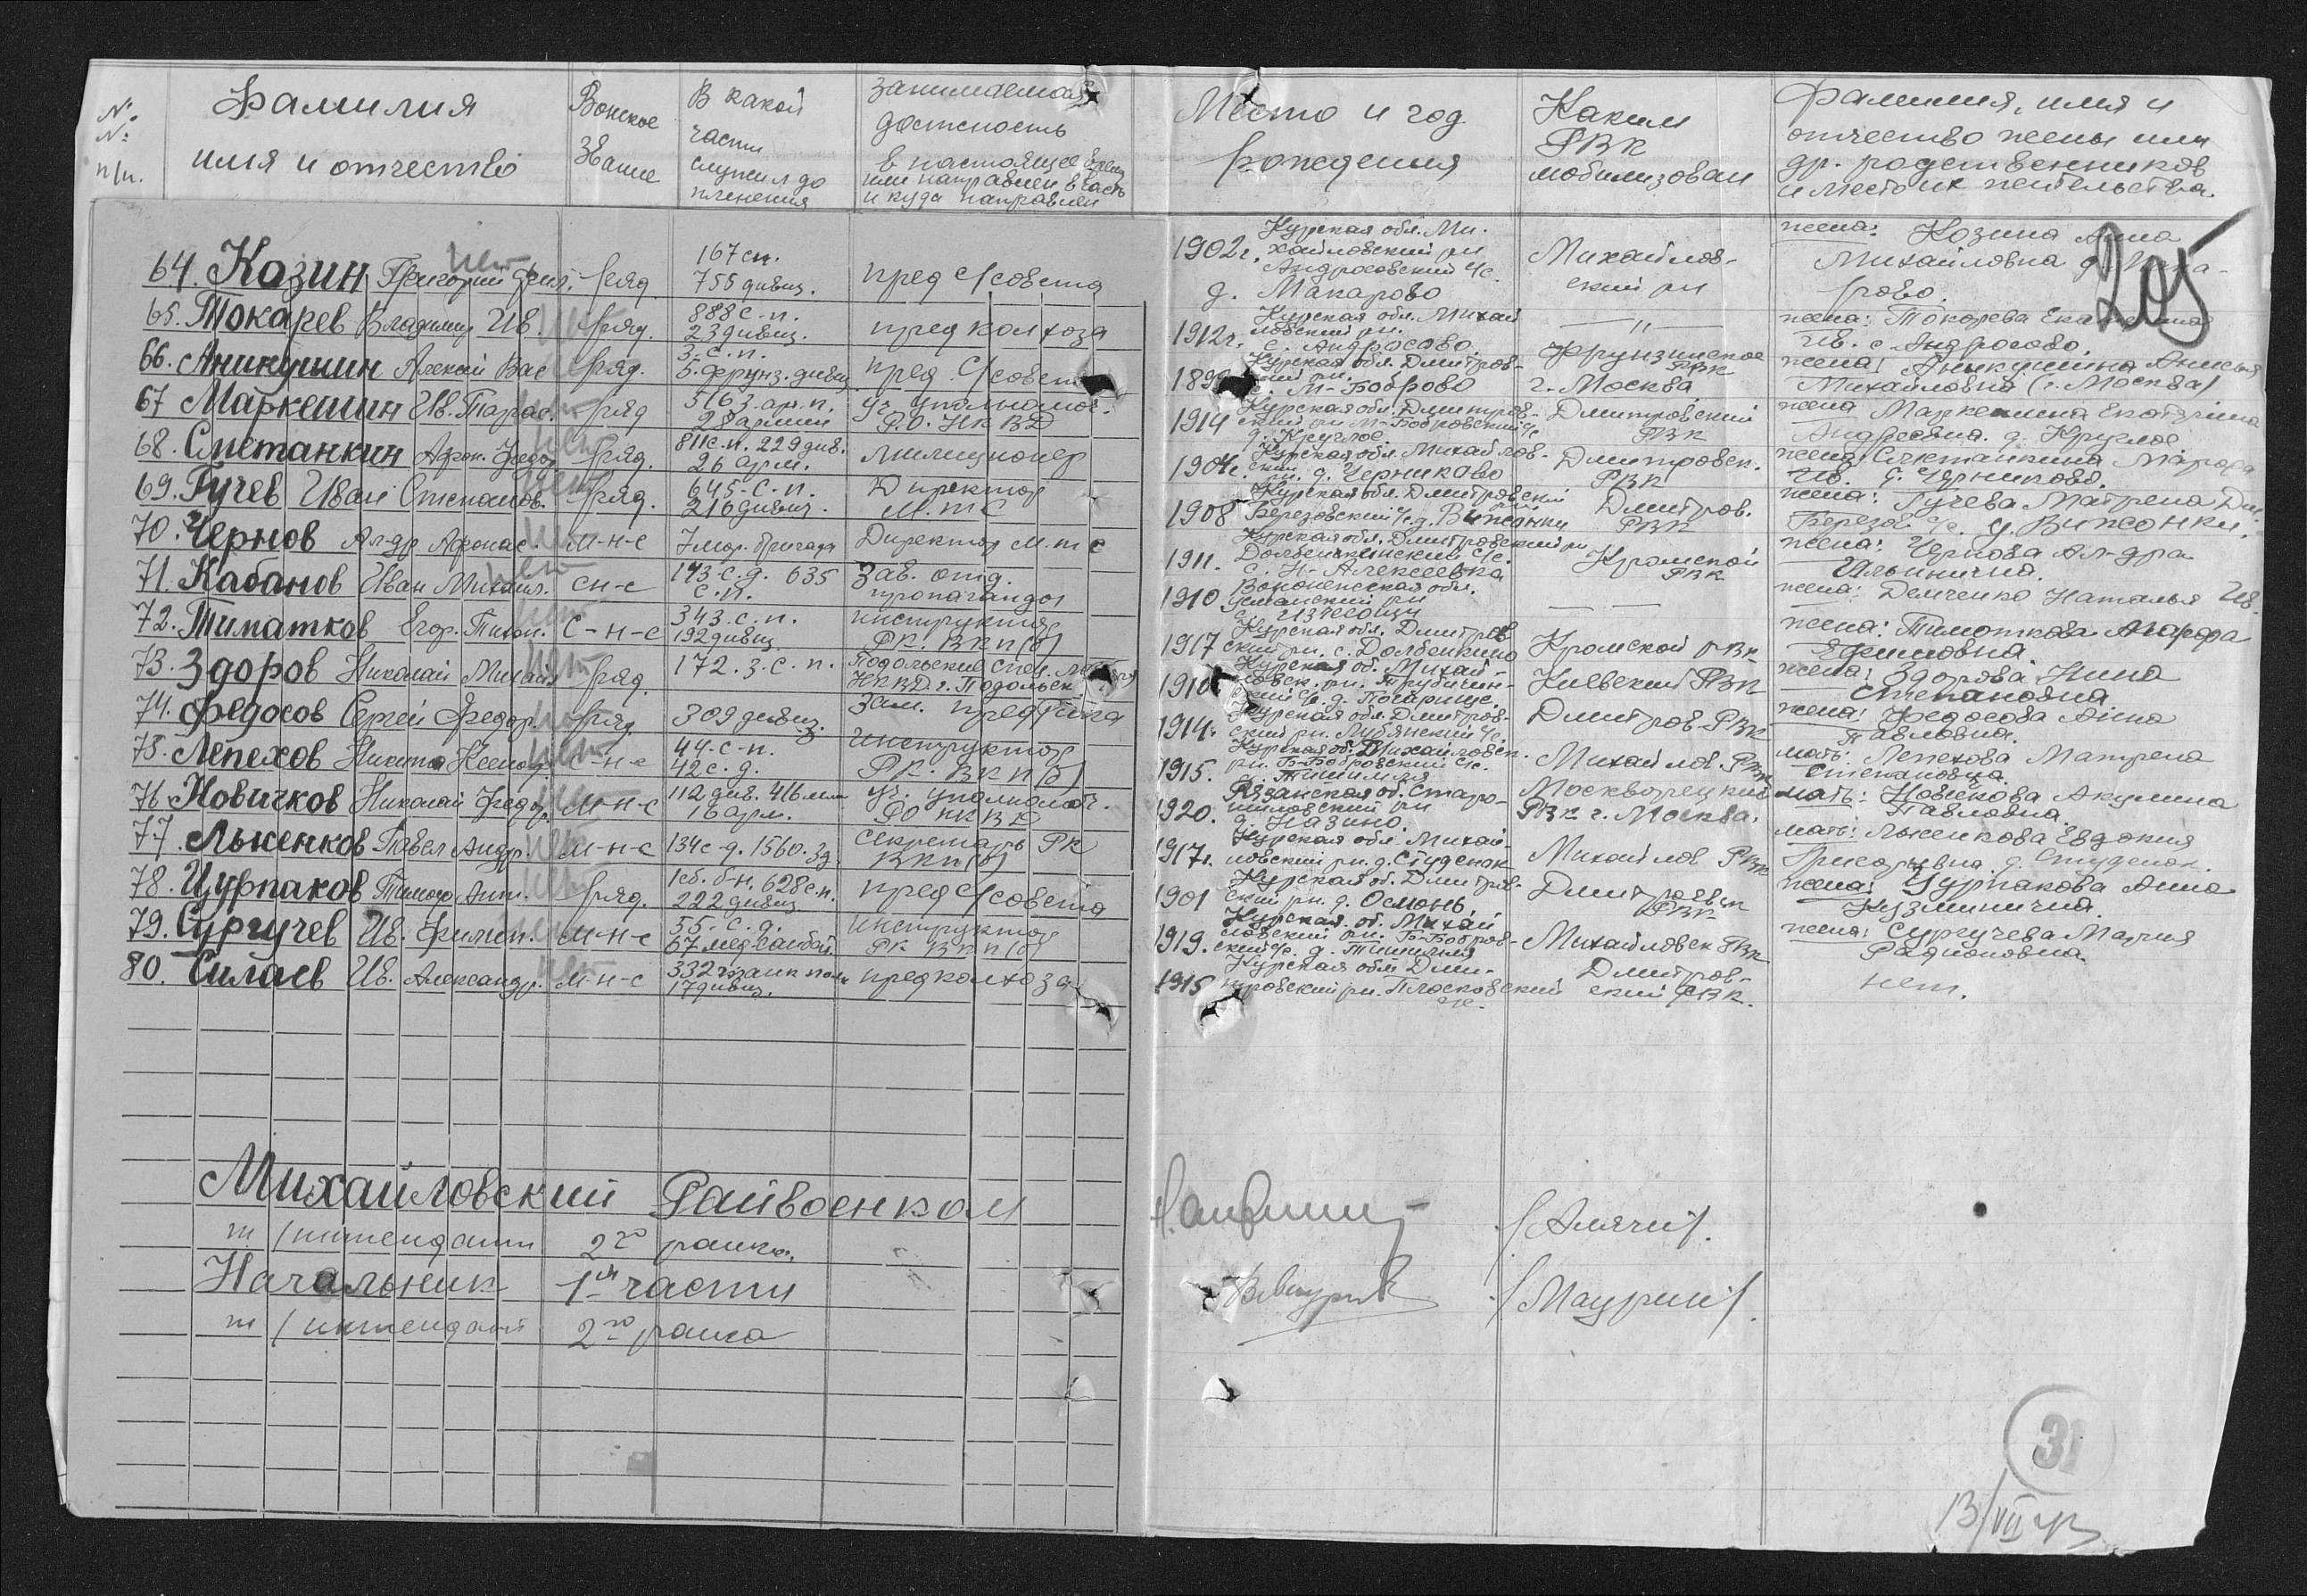 № № п/п.
Фамилия имя и отчество
Воиское звание
В какой части служил до пленения
занимаемая должность в настоящее время или направлен в часть и куда направлен
Место и год рождения
Каким РВК мобилизован
Фамилия, имя и отчество жены или др. родственников и место их жительства.
205
64. Козин Григорий ряд. 167 сп. 755 дивиз. пред с/совета 1902г. Курская обл. Михайловский рн Андросовский с/с. д. Макарово Михайловский рн жена: Козина Анна Михайловна
нет
65. Токарев Владимир Ив. ряд. 888 с.п. 23 дивиз. пред колхоза 1912г. Курская обл. Михайловский рн. с. Андросово —"— жена: Токарева Екатерина Ив. с. Андросово.
66. Аникушин Алексей Вас ряд. 3-с.п. 5. фрунз. дивиз пред С/совета Курская обл. Дмитровский рн. с. М-Боброво Фрунзинское РВК г. Москва жена: Аникушина Анисья Михайловна (г. Москва)
67 Маркешин Ив. Тарас. ряд 28 армии уч. уполномоч. Р.О. НКВД 1914 Курская обл. Дмитровский рн М-Бобровский с/с д. Круглое. Дмитровский РВК жена Маркешина Екатерина Андреевна. д. Круглое
68. Сметанкин Афон. Федор ряд. 811 с.п. 229 див. 26 арм. милиционер 1904г. Курская обл. Михайловский рн. д. Черниково Дмитровск. РВК жена: Сметанкина Марфа Ив. д. Черниково.
69. Гучев Иван Степанов. ряд. 645-с-п. 216 дивиз. Директор М.т.с 1908 Курская обл. Дмитровский рн Березовский с/с д. Вижонки Дмитров. РВК жена: Гучева Матрена Дм. Березов с/с. д. Вижонки.
70. Чернов Ал-др Афонас. м-н-с 7 мор. бригада Директор м.т.с 1911. Курская обл. Дмитровский рн Долбенкинский с/с. с. Н-Алексеевка Кромской РВК жена: Чернова Ал-дра Ильинична.
71. Кабанов Иван Михаил. сн-с 143 с.д. 635 с.п. Зав. отд. пропаганды 1910 Воронежская обл. Усманский рн — — жена: Демченко Наталья Ив.
72. Тиматков Егор. Тихон. с-н-с 343. с.п. 192 дивиз инструктор РК. ВКП(б) 1917 Курская обл. Дмитровский рн. с. Долбенкино Кромской РВК жена: Тимоткова Агафья Ефимовна
73. Здоров Николай Михайл ряд. 172. з. с. п. Подольский спец. НКВД г. Подольск 1910 Курская об. Михайловск. рн. Трубичинский с/с. д. Погорище. Киевский РВК жена: Здорова Нина Степановна
74. Федосов Сергей Федор. ряд. 309 дивиз. зам. 1914. Курская обл. Дмитровский рн. Лубянский с/с. Дмитров РВК жена: Федосова Анна Павловна.
75. Лепехов Никита с-н-с 44-с-п. 42 с.д. инструктор РК. ВКП(б) 1915. Курская об. Михайловск. рн. Б-Бобровский с/с. Михайлов. РВК мать: Лепехова Матрена Степановна
76. Новичков Николай Федор. м-н-с 112 див. 416 16 арм. уч. уполномоч. РО НКВД 1920. Рязанская об. Старожиловский рн д. Назино. Москворецкий РВК г. Москва. мать: Новикова Акулина Павловна
77. Льненков Павел Андр. м-н-с 134 с-д. 1560. зд. секретарь РК ВКП(б) 1917г. Курская обл. Михайловский рн. д. Студенок Михайлов РВК мать: Льненкова Евдокия Григорьевна д. Студенок.
78. Цурпаков Тимоф. Ант. ряд. 628 с.п. 222 дивиз. пред с/совета 1901 Курская об. Дмитровский рн. д. Осмонь Дмитровск РВК жена: Цурпакова Анна Кузминична.
79. Сургучев Ив. Филип. м-н-с 55-с.д. 67 мед-санбат инструктор РК ВКП(б) 1919. Курская. об. Михайловский рн. Б-Бобровский с/с. Михайловск РВК жена: Сургучева Мария Радионовна.
80. Силаев Ив. Александр. м-н-с 332 17 дивиз. пред колхоза 1915 Курская обл. Дмитровский рн. Плосковский с/с. Дмитровский РВК. нет.
Михайловский Райвоенком
т/интендант 2го ранга.
/Алячин/.
Начальник 1й части
т/интендант 2го ранга
/Маурин/.
31
13/VII 43